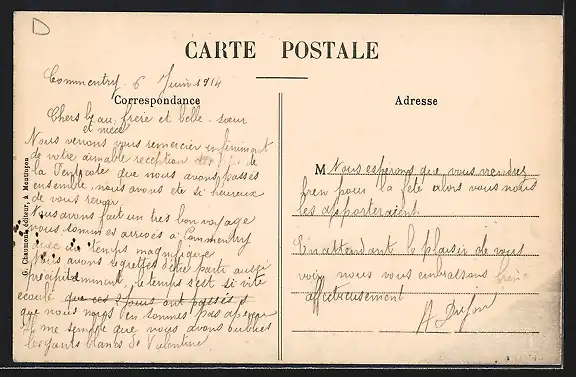 D
CARTE POSTALE
Commentry 6 Juin 1914
Correspondance
Chers beau-frère et belle-sœur
et nièce
Nous venons vous remercier infiniment
de votre aimable réception de
la Pentecote que nous avons passés
ensemble, nous avons été si heureux
de vous revoir.
Nous avons fait un très bon voyage
nous sommes arrivés à Commentry
avec un temps magnifique
Nous avons regrettés d'être parti aussi
précipitamment, le temps s'est si vite
écoulé que ces 2 jours ont passés
que nous nous en sommes pas aperçu
Il me semble que nous avons oubliés
les gants blancs de Valentine
G. Chaumont, éditeur, à Montluçon
Adresse
M Nous espérons que vous viendrez
bien pour la fête alors vous nous
les apporteraient
En attendant le plaisir de vous
voir nous vous embrassons bien
affectueusement
A